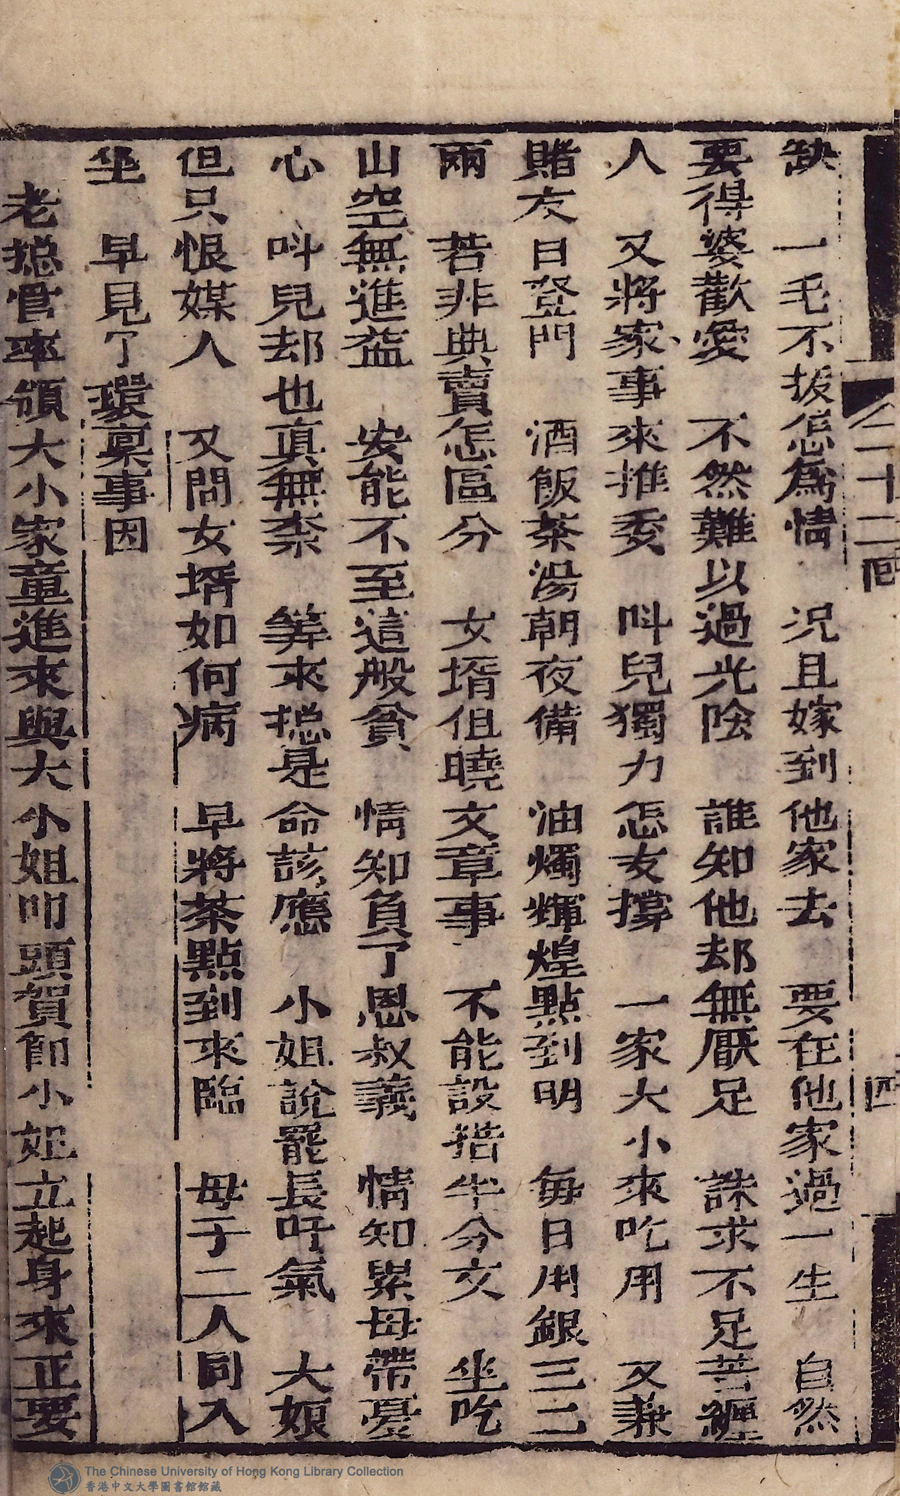 二十二囬
四
缺　一毛不拔怎爲情　况且嫁到他家去　要在他家過一生　自然
要得婆歡愛　不然難以過光陰　誰知他却無厭足　誅求不足苦纏
人　又將家事來推委　呌兒獨力怎支撐　一家大小來吃用　又兼
賭友日登門　酒飯茶湯朝夜備　油燭輝煌點到明　每日用銀三二
兩　若非典賣怎區分　女壻但曉文章事　不能設措半分文　坐吃
山空無進益　安能不至這般貧　情知負了恩叔義　情知累母帶憂
心　呌兒却也真無柰　筭來揔是命該應　小姐說罷長吁氣　大娘
但只恨媒人　又問女壻如何病　早將茶點到來臨　母子二人同入
坐　早見了環禀事因
老揔管率領大小家童進來與大小姐叩頭賀節小姐立起身來正要
The Chinese University of Hong Kong Library Collection
香港中文大學圖書館館藏